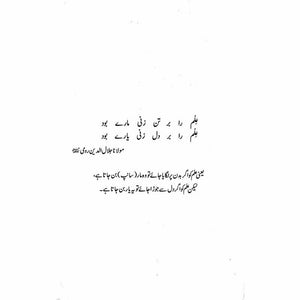 علم را بر تن زنی مارے بود
علم را بر دل زنی یارے بود
مولانا جلال الدین رومی
یعنی علم کو اگر بدن پر لگایا جائے تو وہ مار (سانپ) بن جاتا ہے،
لیکن علم کو اگر دل سے جوڑا جائے تو یہ یار بن جاتا ہے۔